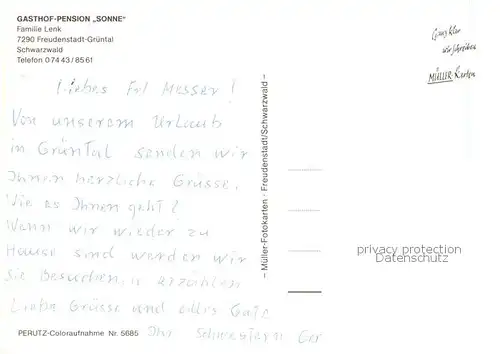 GASTHOF-PENSION „SONNE“
Familie Lenk
7290 Freudenstadt-Grüntal
Schwarzwald
Telefon 0 74 43 / 85 61
Liebes Frl Messer!
Von unserem Urlaub
in Grüntal senden wir
Ihnen herzliche Grüsse.
Wie es Ihnen geht?
Wenn wir wieder zu
Hause sind werden wir
Sie Besuchen, u erzählen
Liebe Grüsse und alles Gute
Ihr Schwestern Ger
PERUTZ-Coloraufnahme Nr. 5685
– Müller-Fotokarten · Freudenstadt/Schwarzwald –
Ganz klar
wir schreiben
MÜLLER Karten
privacy protection
Datenschutz